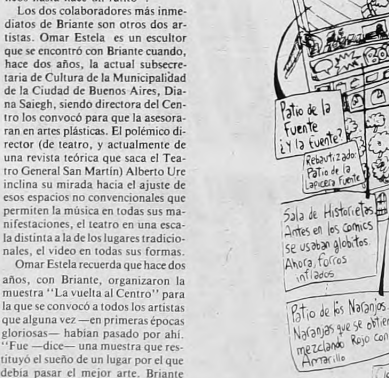 Los dos colaboradores más inme-
diatos de Briante son otros dos ar-
tistas. Omar Estela es un escultor
que se encontró con Briante cuando,
hace dos años, la actual subsecre-
taria de Cultura de la Municipalidad
de la Ciudad de Buenos Aires, Dia-
na Saiegh, siendo directora del Cen-
tro los convocó para que la asesora-
ran en artes plásticas. El polémico di-
rector (de teatro, y actualmente de
una revista teórica que saca el Tea-
tro General San Martín) Alberto Ure
inclina su mirada hacia el ajuste de
esos espacios no convencionales que
permiten la música en todas sus ma-
nifestaciones, el teatro en una esca-
la distinta a la de los lugares tradicio-
nales, el video en todas sus formas.
Omar Estela recuerda que hace dos
años, con Briante, organizaron la
muestra "La vuelta al Centro" para
la que se convocó a todos los artistas
que alguna vez —en primeras épocas
gloriosas— habían pasado por ahí.
"Fue —dice— una muestra que res-
tituyó el sueño de un lugar por el que
debía pasar el mejor arte. Briante
Patio de la
Fuente
¿Y la fuente?
Rebautizado:
Patio de la
Lapicera Fuente
Sala de Historietas
Antes en los comics
se usaban globitos
Ahora, forros
inflados
Patio de los Naranjos.
Naranjas que se obtie
mezclando Rojo con
Amarillo